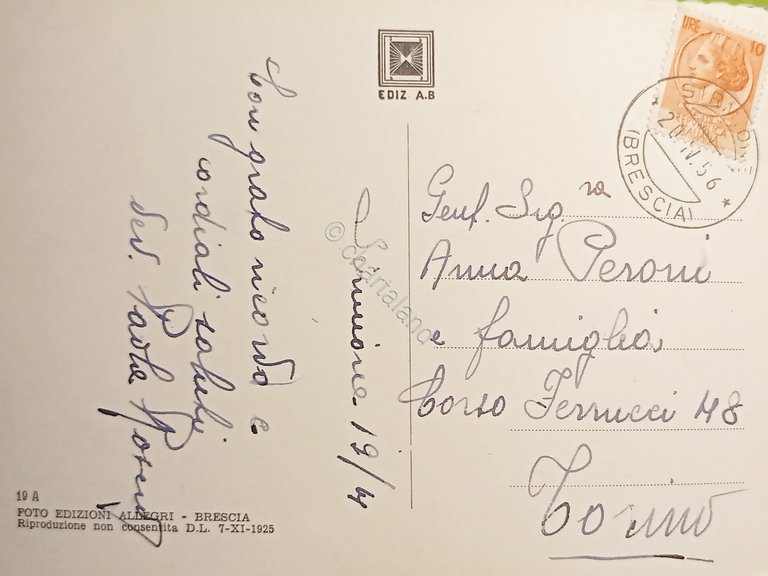 EDIZ A.B
LIRE 10
SIRMIONE
20.IV.56
(BRESCIA)
Sirmione 19/4
Con grato ricordo e
cordiali saluti
dev. Paola
Gent. Sig.ra
Anna Peroni
e famiglia
Corso Ferrucci 48
Torino
19 A
FOTO EDIZIONI ALLEGRI - BRESCIA
Riproduzione non consentita D.L. 7-XI-1925
© cartaland